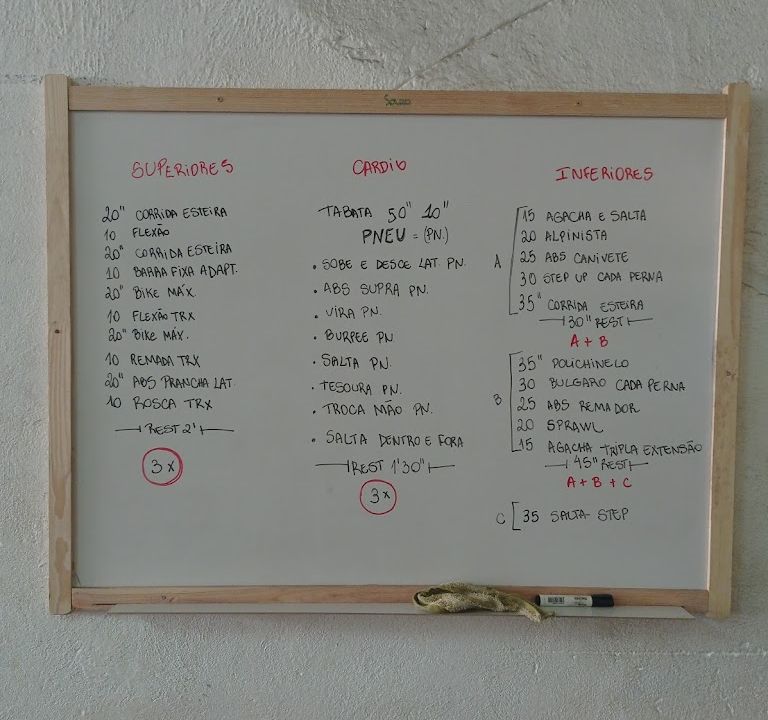 SUPERIORES
20" CORRIDA ESTEIRA
10 FLEXÃO
20" CORRIDA ESTEIRA
10 BARRA FIXA ADAPT.
20" BIKE MÁX.
10 FLEXÃO TRX
20" BIKE MÁX.
10 REMADA TRX
20" ABS PRANCHA LAT.
10 ROSCA TRX
REST 2'
3x
CARDIO
TABATA 50" 10"
PNEU = (PN.)
• SOBE E DESCE LAT. PN.
• ABS SUPRA PN.
• VIRA PN.
• BURPEE PN
• SALTA PN.
• TESOURA PN.
• TROCA MÃO PN.
• SALTA DENTRO E FORA
REST 1'30"
3x
INFERIORES
A
15 AGACHA E SALTA
20 ALPINISTA
25 ABS CANIVETE
30 STEP UP CADA PERNA
35" CORRIDA ESTEIRA
30" REST
A + B
B
35" POLICHINELO
30 BULGARO CADA PERNA
25 ABS REMADOR
20 SPRAWL
15 AGACHA TRIPLA EXTENSÃO
45" REST
A + B + C
C [35 SALTA STEP